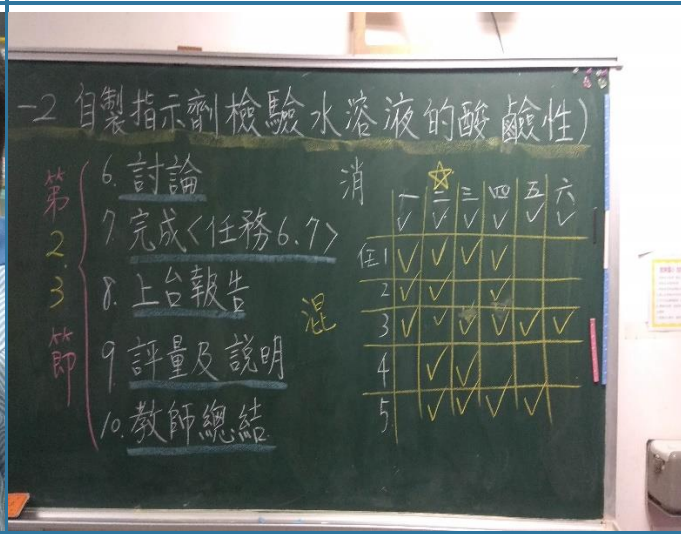 -2 自製指示劑檢驗水溶液的酸鹼性)
第2.3節
6. 討論
7. 完成<任務6.7>
8. 上台報告
9. 評量及說明
10. 教師總結
消
混
一 二 三 四 五 六
✓ ✓ ✓ ✓ ✓ ✓
任1 ✓ ✓ ✓ ✓
2 ✓ ✓ ✓
3 ✓ ✓ ✓ ✓ ✓ ✓
4 ✓ ✓
5 ✓ ✓ ✓ ✓